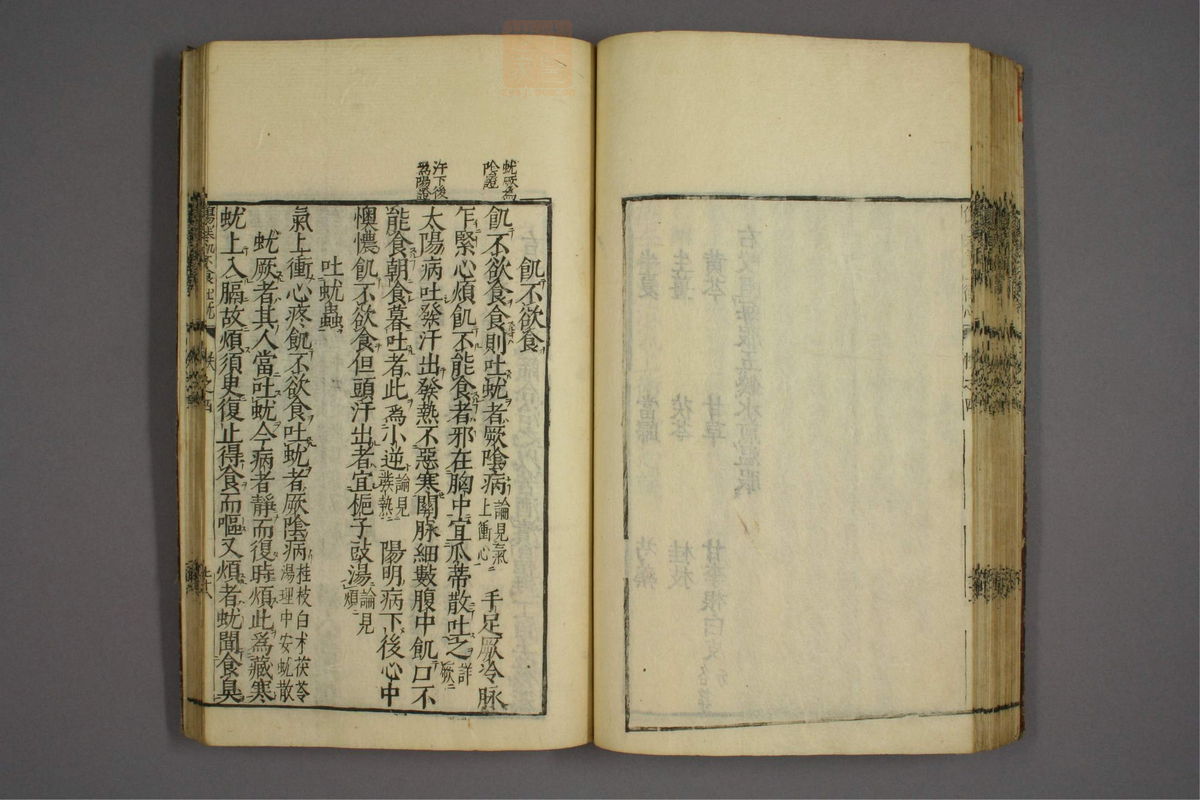 飢不欲食
飢不欲食食則吐蚘者厥陰病論見氣上衝心 手足厥冷脉
乍緊心煩飢不能食者邪在胸中宜瓜蒂散吐之詳厥
太陽病吐發汗出發熱不惡寒關脉細數腹中飢口不
能食朝食暮吐者此爲小逆論見發熱 陽明病下後心中
懊憹飢不欲食但頭汗出者宜梔子豉湯論見煩
吐蚘蟲
氣上衝心疼飢不欲食吐蚘者厥陰病桂枝白术茯苓湯理中安蚘散
蚘厥者其人當吐蚘今病者靜而復時煩此爲藏寒
蚘上入膈故煩須臾復止得食而嘔又煩者蚘聞食臭
蚘厥爲
陰證
汗下後
爲陽證